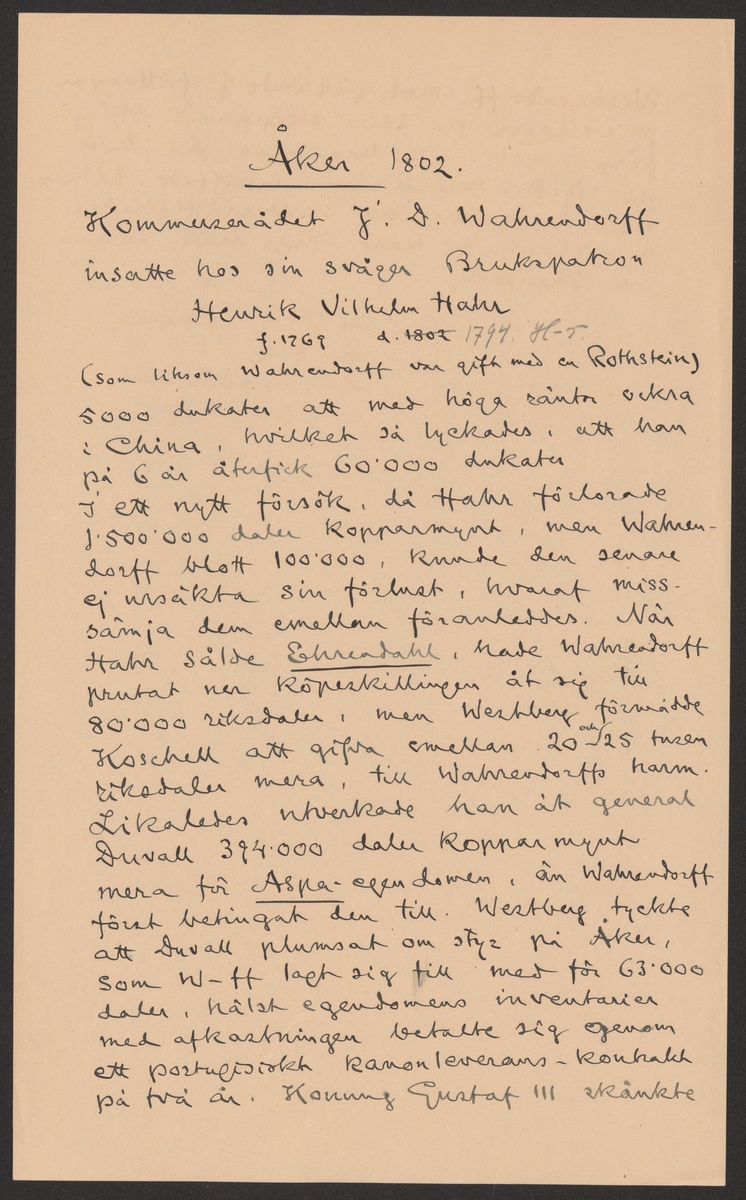 Åker 1802.
Kommerserådet J. D. Wahrendorff
insatte hos sin svåger Brukspatron
Henrik Vilhelm Hahr
f. 1769 d. 1802 1794. H-r.
(som liksom Wahrendorff var gift med en Rothstein)
5000 dukater att med höga räntor ockra
i China, hvilket så lyckades, att han
på 6 år återfick 60'000 dukater
I ett nytt försök, då Hahr förlorade
1'500'000 daler kopparmynt, men Wahren-
dorff blott 100'000, kunde den senare
ej ursäkta sin förlust, hvaraf miss-
sämja dem emellan föranleddes. När
Hahr sålde Ehrendahl, hade Wahrendorff
prutat ner köpeskillingen åt sig till
80'000 riksdaler, men Westberg förmådde
Koschell att gifva emellan 20 och 25 tusen
riksdaler mera, till Wahrendorffs harm.
Likaledes utverkade han åt general
Duvall 394'000 daler kopparmynt
mera för Aspa-egendomen, än Wahrendorff
först betingat den till. Westberg tyckte
att Duvall plumsat om styr på Åker,
som W-ff lagt sig till med för 63'000
daler, hälst egendomens inventarier
med afkastningen betalte sig genom
ett portugisiskt kanonleverans-kontrakt
på två år. Konung Gustaf III skänkte